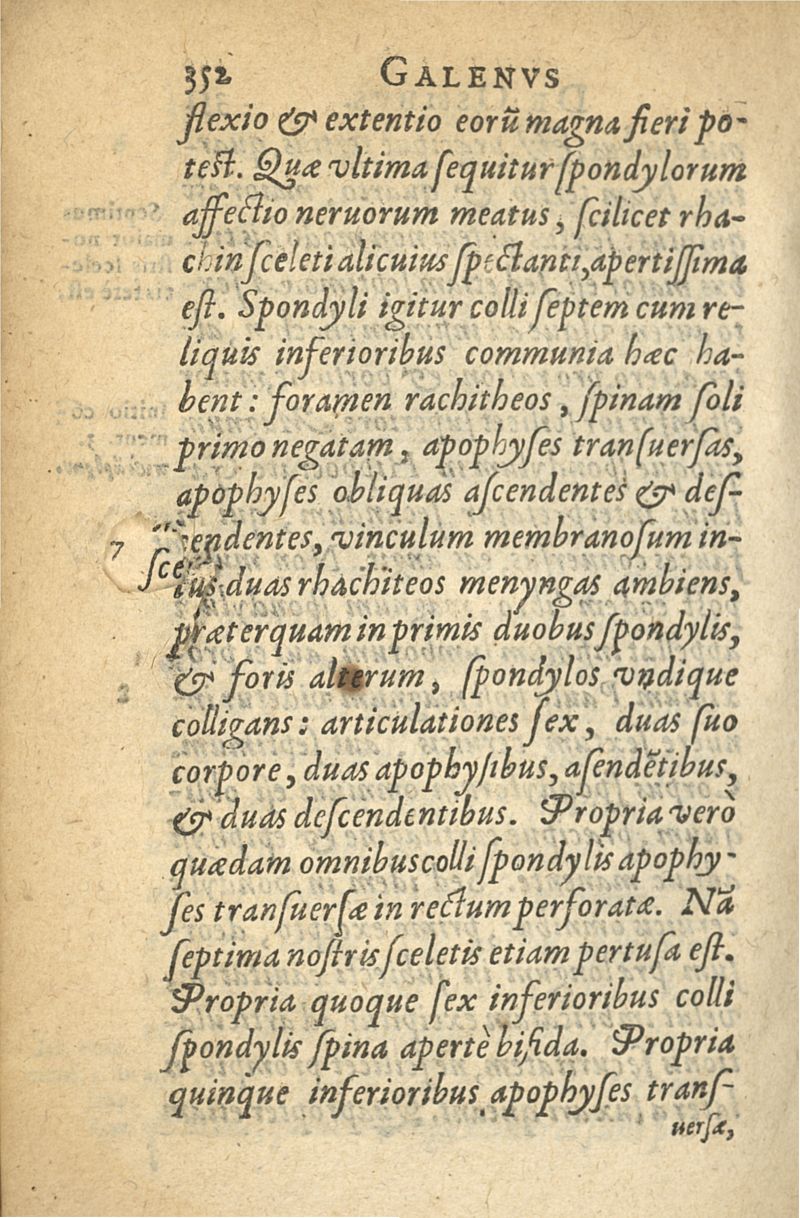 352 GALENVS
flexio & extentio eorũ magna fieri po-
test. Quæ vltima sequitur spondylorum
affectio neruorum meatus, scilicet rha-
chin sceleti alicuius spectanti, apertissima
est. Spondyli igitur colli septem cum re-
liquis inferioribus communia hæc ha-
bent: foramen rachitheos, spinam soli
primo negatam, apophyses transuersas,
apophyses obliquas ascendentes & des-
7 scendentes, vinculum membranosum in-
tus duas rhachiteos menyngas ambiens,
præterquam in primis duobus spondylis,
& foris alterum, spondylos vndique
colligans: articulationes sex, duas suo
corpore, duas apophysibus, asendẽtibus,
& duas descendentibus. Propria verò
quædam omnibus colli spondylis apophy-
ses transuersæ in rectum perforatæ. Nã
septima nostris sceletis etiam pertusa est.
Propria quoque sex inferioribus colli
spondylis spina apertè bifida. Propria
quinque inferioribus apophyses trans-
uersæ,